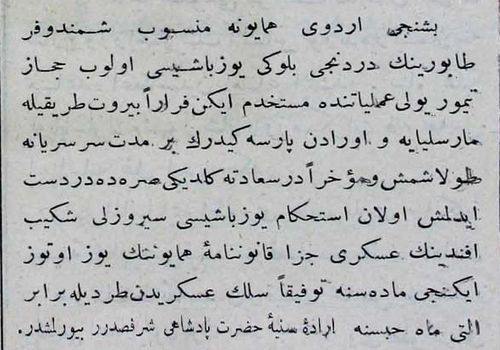 بشنجی اردوی همایونه منسوب شمندوفر
طابورینك دردنجی بلوكی یوزباشیسی اولوب حجاز
تیمور یولی عملیاتنده مستخدم ایكن فراراً بیروت طریقیله
مارسلیایه و اورادن پارسه كیدرك بر مدت سرسریانه
طولاشمش و مؤخراً درسعادته كلدیكی صره ده دردست
ایدلمش اولان استحكام یوزباشیسی سیروزلی شكیب
افندینك عسكری جزا قانوننامهٔ همایوننك یوز اوتوز
ایكنجی ماده سنه توفیقاً سلك عسكریدن طردیله برابر
التی ماه حبسنه ارادهٔ سنیهٔ حضرت پادشاهی شرفصدور بیورلمشدر.